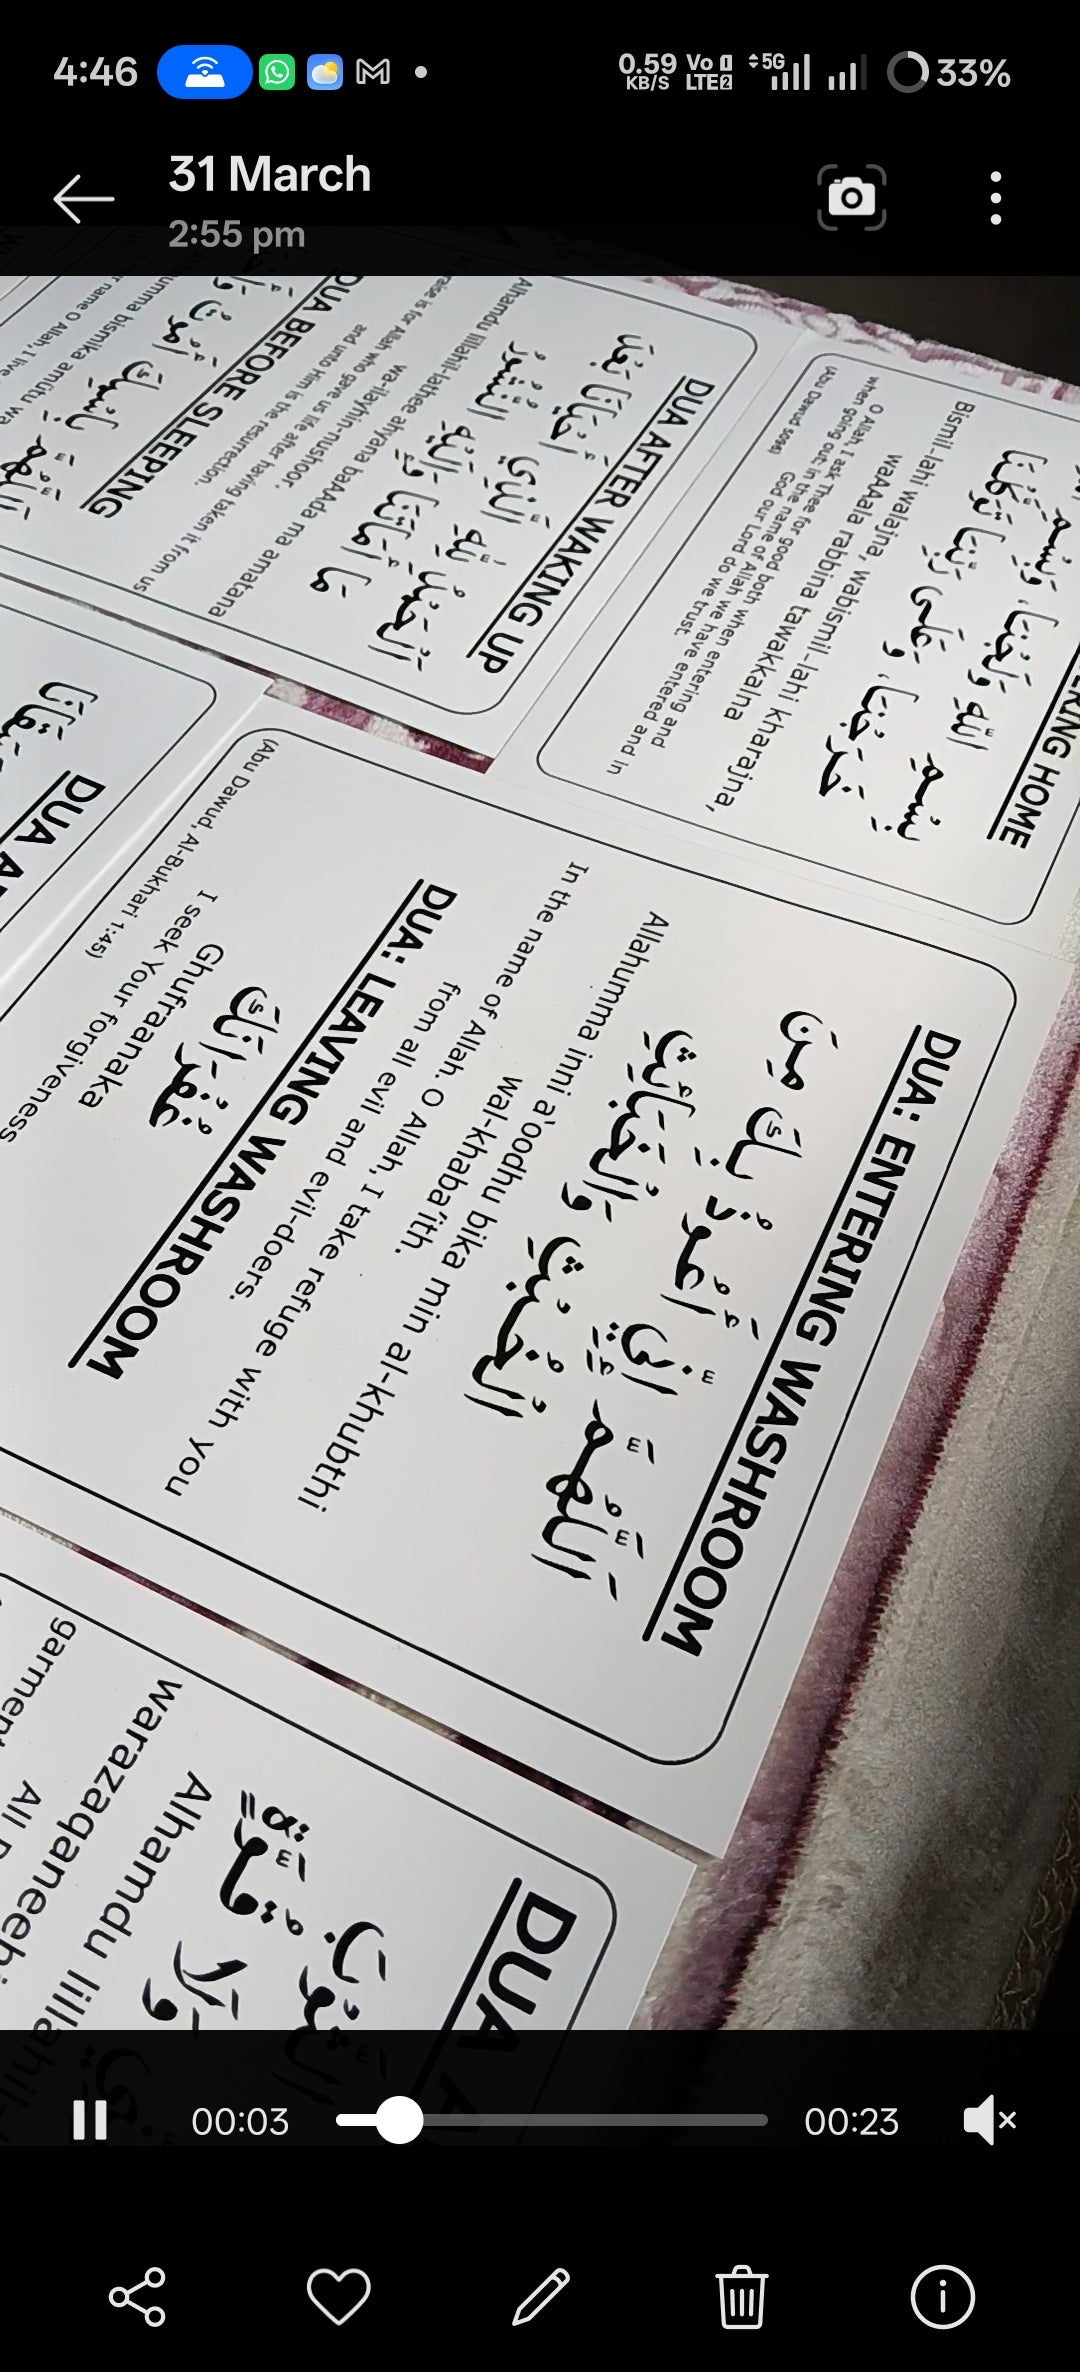 4:46
0.59 KB/S
Vo LTE 2
5G
33%
31 March
2:55 pm
ERING HOME
بِسْمِ
اللهِ وَلَجْنَا، وَبِسْمِ
خَرَجْنَا، وَعَلَى رَبِّنَا تَوَكَّلْنَا
Bismil-lahi walajna, wabismil-lahi kharajna,
waAAala rabbina tawakkalna
O Allah, I ask Thee for good both when entering and
when going out; in the name of Allah we have entered and in
God our Lord do we trust.
(Abu Dawud 5096)
DUA AFTER WAKING UP
اَلْحَمْدُ لِلّٰهِ الَّذِي أَحْيَانَا بَعْدَ
مَا أَمَاتَنَا وَإِلَيْهِ النُّشُورُ
Alhamdu lillahil-lathee ahyana baAAda ma amatana
wa-ilayhin-nushoor.
raise is for Allah who gave us life after having taken it from us
and unto Him is the resurrection.
DUA BEFORE SLEEPING
اَللّٰهُمَّ بِاسْمِكَ أَمُوتُ
umma bismika amūtu wa
name O Allah, I live
DUA: ENTERING WASHROOM
اَللّٰهُمَّ اِنِّيْ أَعُوْذُ بِكَ مِنَ
الْخُبْثِ وَالْخَبَائِثِ
Allahumma inni a'oodhu bika min al-khubthi
wal-khaba'ith.
In the name of Allah. O Allah, I take refuge with you
from all evil and evil-doers.
DUA: LEAVING WASHROOM
غُفْرَانَكَ
Ghufraanaka
I seek Your forgiveness
(Abu Dawud, Al-Bukhari 1:45)
DUA A
DUA A
الثَّوْبَ
وَلَا قُوَّةٍ
Alhamdu lillahil
warazaqaneehi
All
garment
00:03
00:23